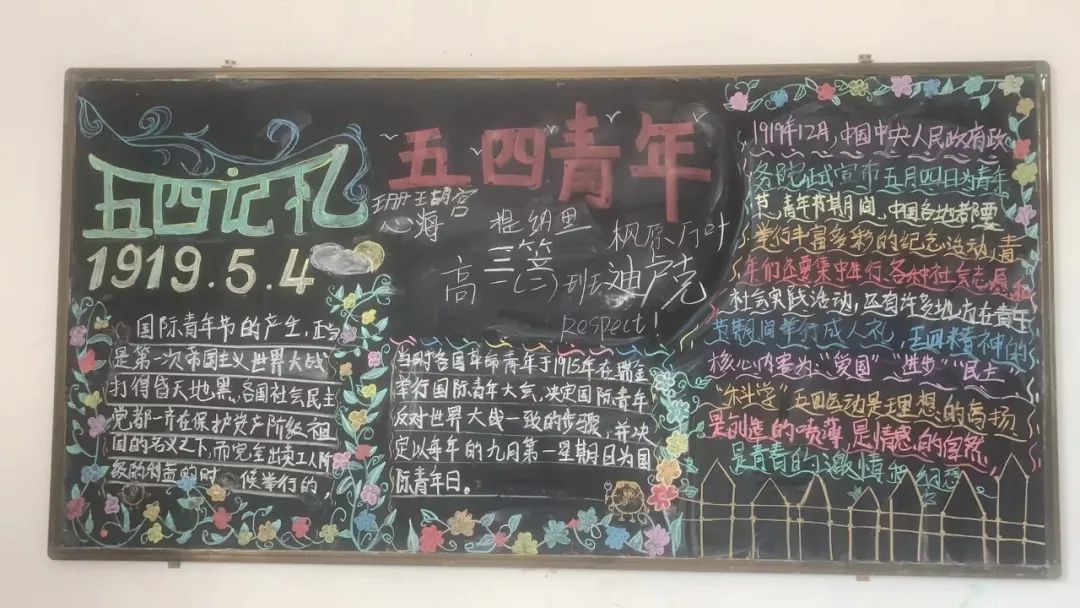 五四记忆
1919.5.4
国际青年节的产生,正当
是第一次帝国主义世界大战
打得昏天地黑,各国社会民主
党都一齐在保护资产阶级祖
国的名义之下,而完全出卖工人阶
级的利益的时 候举行的,
五四青年
珊瑚宫
心海
提纳里
枫原万叶
高三(二)班
迪卢克
respect!
当时各国革命青年于1915年在瑞金
举行国际青年大会,决定国际青年
反对世界大战一致的步骤,并决
定以每年的九月第一星期日为国
际青年日。
1919年12月,中国中央人民政府政
务院正式宣布五月四日为青年
节,青年节期间,中国各地都要
举行丰富多彩的纪念活动,青
年们还要集中进行各种社会志愿和
社会实践活动,还有许多地方在青年
节期间举行成人礼,五四精神的
核心内容为:“爱国”“进步”“民主”
“科学”五四运动是理想的高扬
是创造的喷薄,是情感的自然,
是青春的激情和